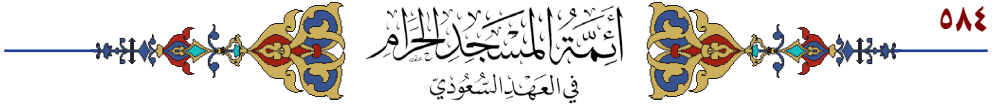 ٥٨٤
أَئِمَّةُ المَسْجِدِ الحَرَامِ
فِي العَهْدِ السُّعُودِيّ